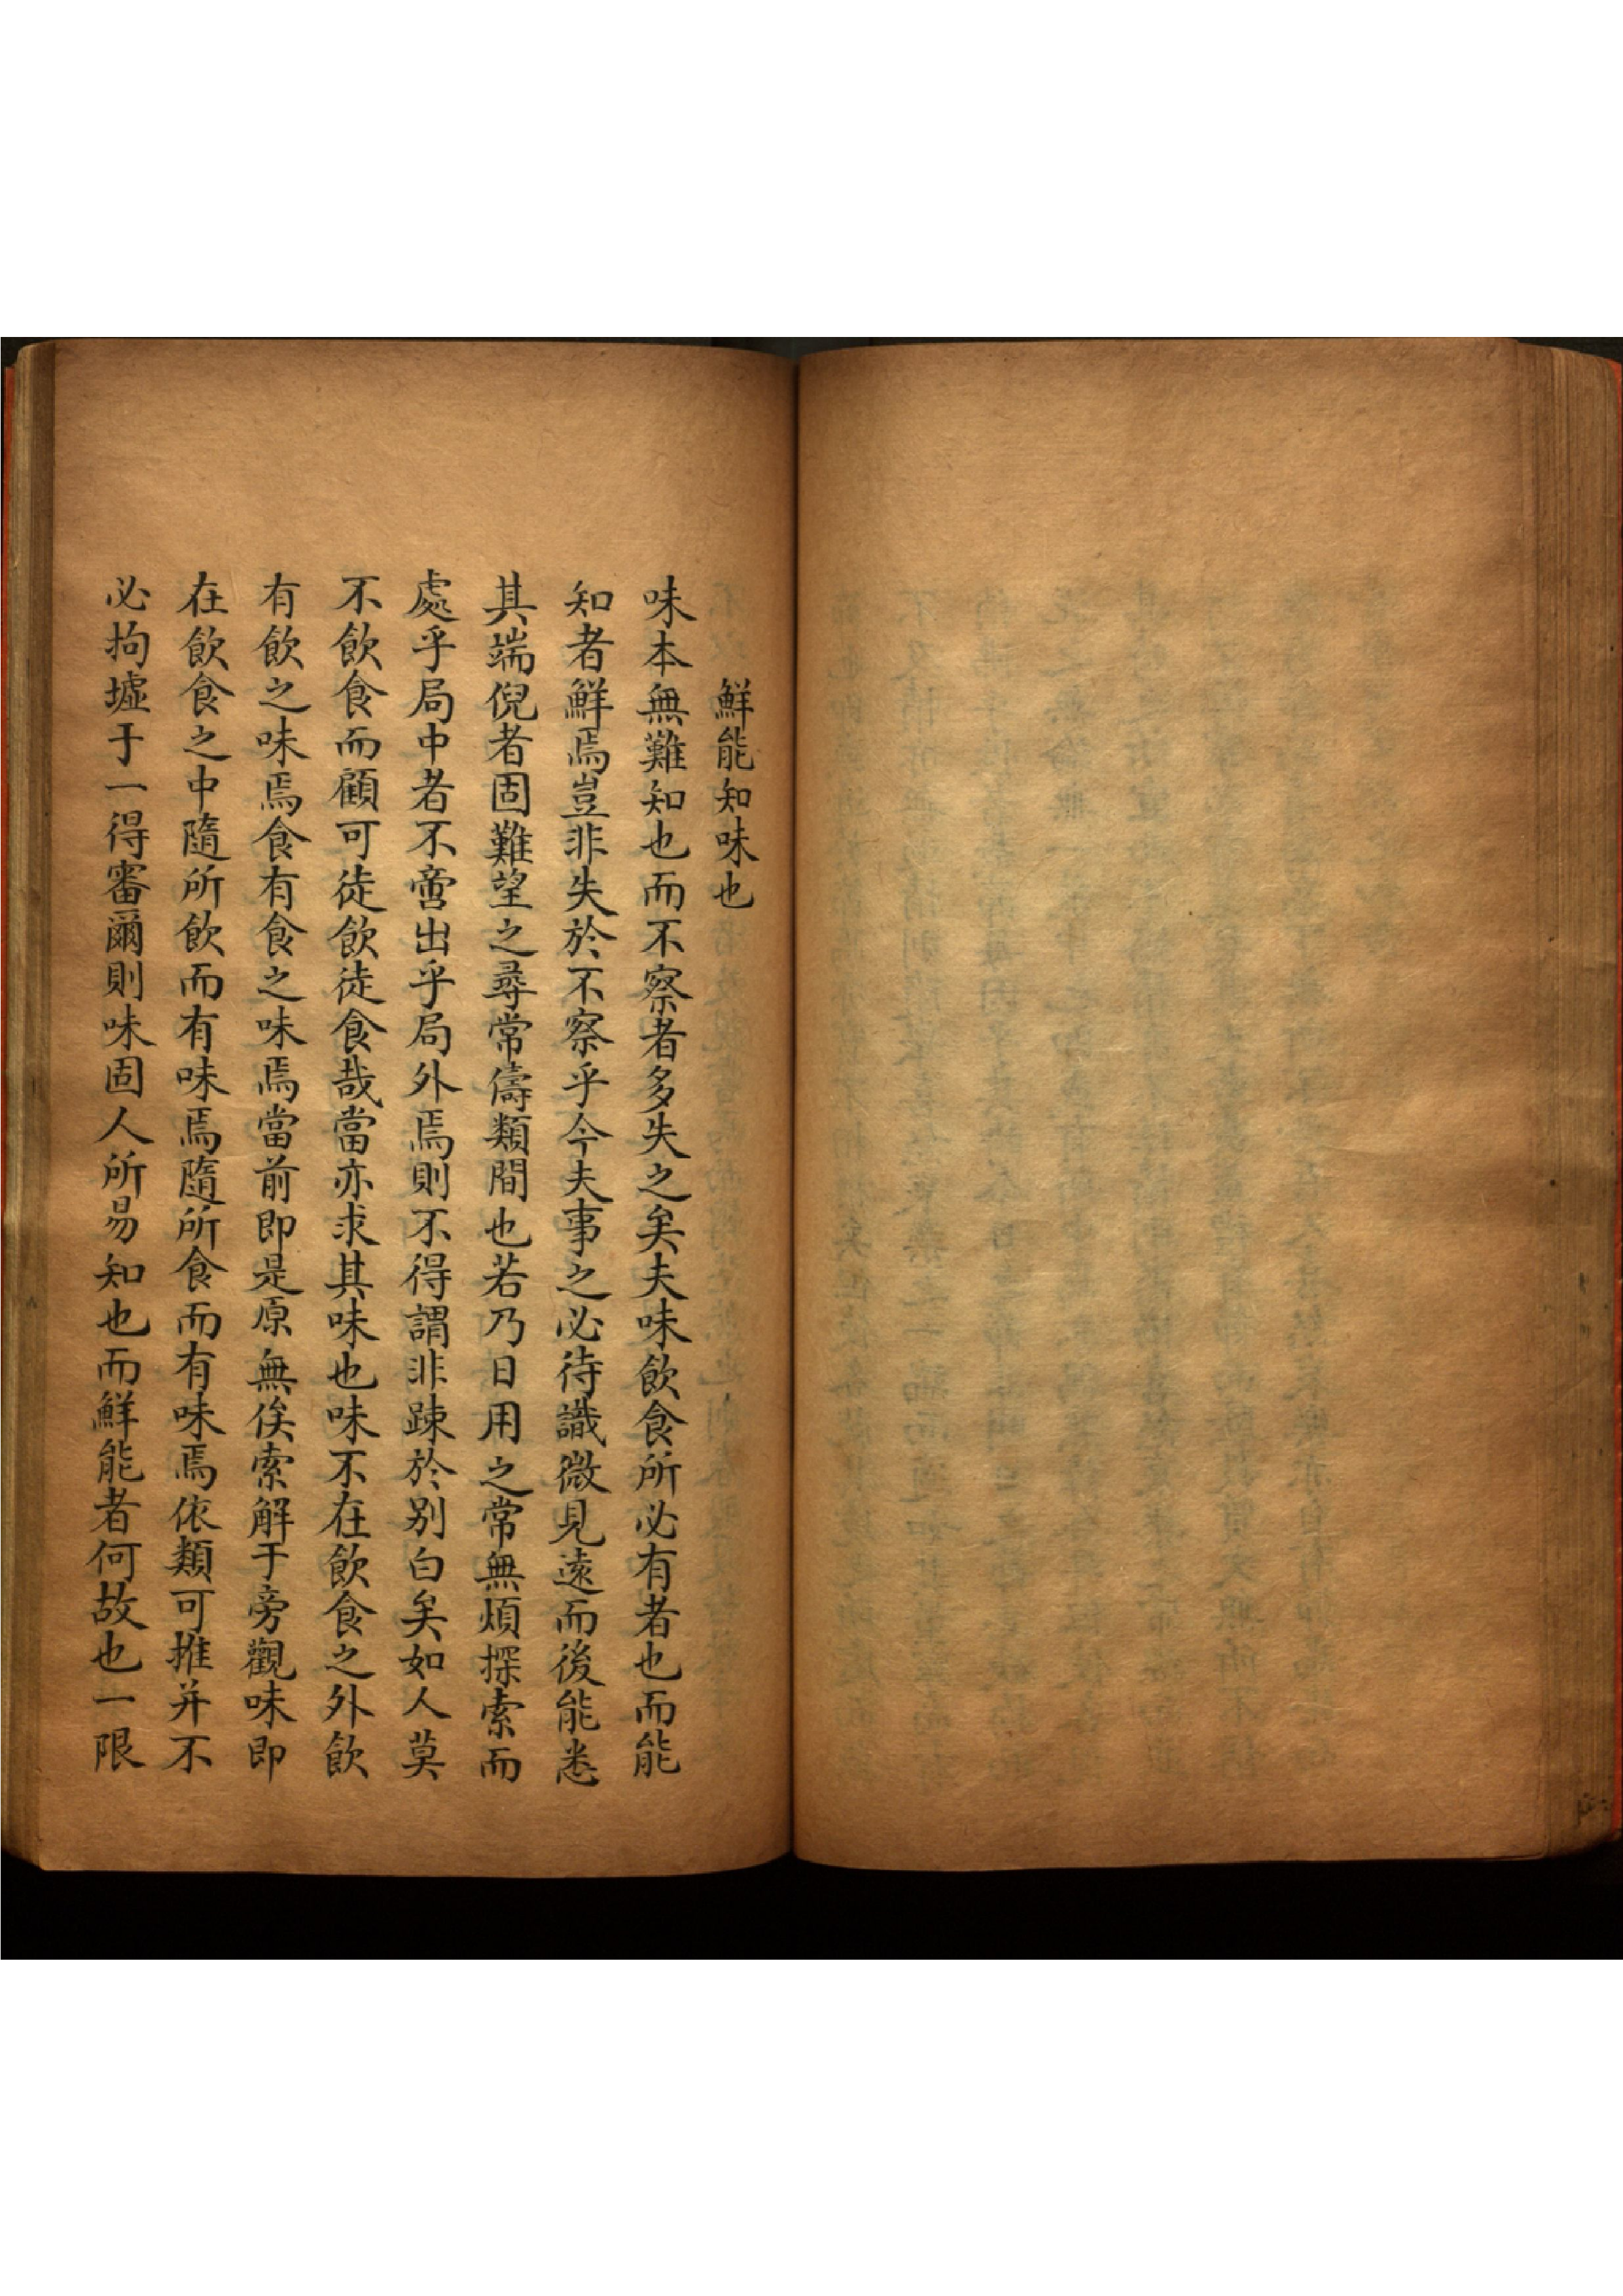 鮮能知味也
味本無難知也而不察者多失之矣夫味飲食所必有者也而能
知者鮮焉豈非失於不察乎今夫事之必待識微見遠而後能悉
其端倪者固難望之尋常儔類間也若乃日用之常無煩探索而
處乎局中者不啻出乎局外焉則不得謂非踈於别白矣如人莫
不飲食而顧可徒飲徒食哉當亦求其味也味不在飲食之外飲
有飲之味焉食有食之味焉當前即是原無俟索解于旁觀味即
在飲食之中隨所飲而有味焉隨所食而有味焉依類可推并不
必拘墟于一得審爾則味固人所易知也而鮮能者何故也一限